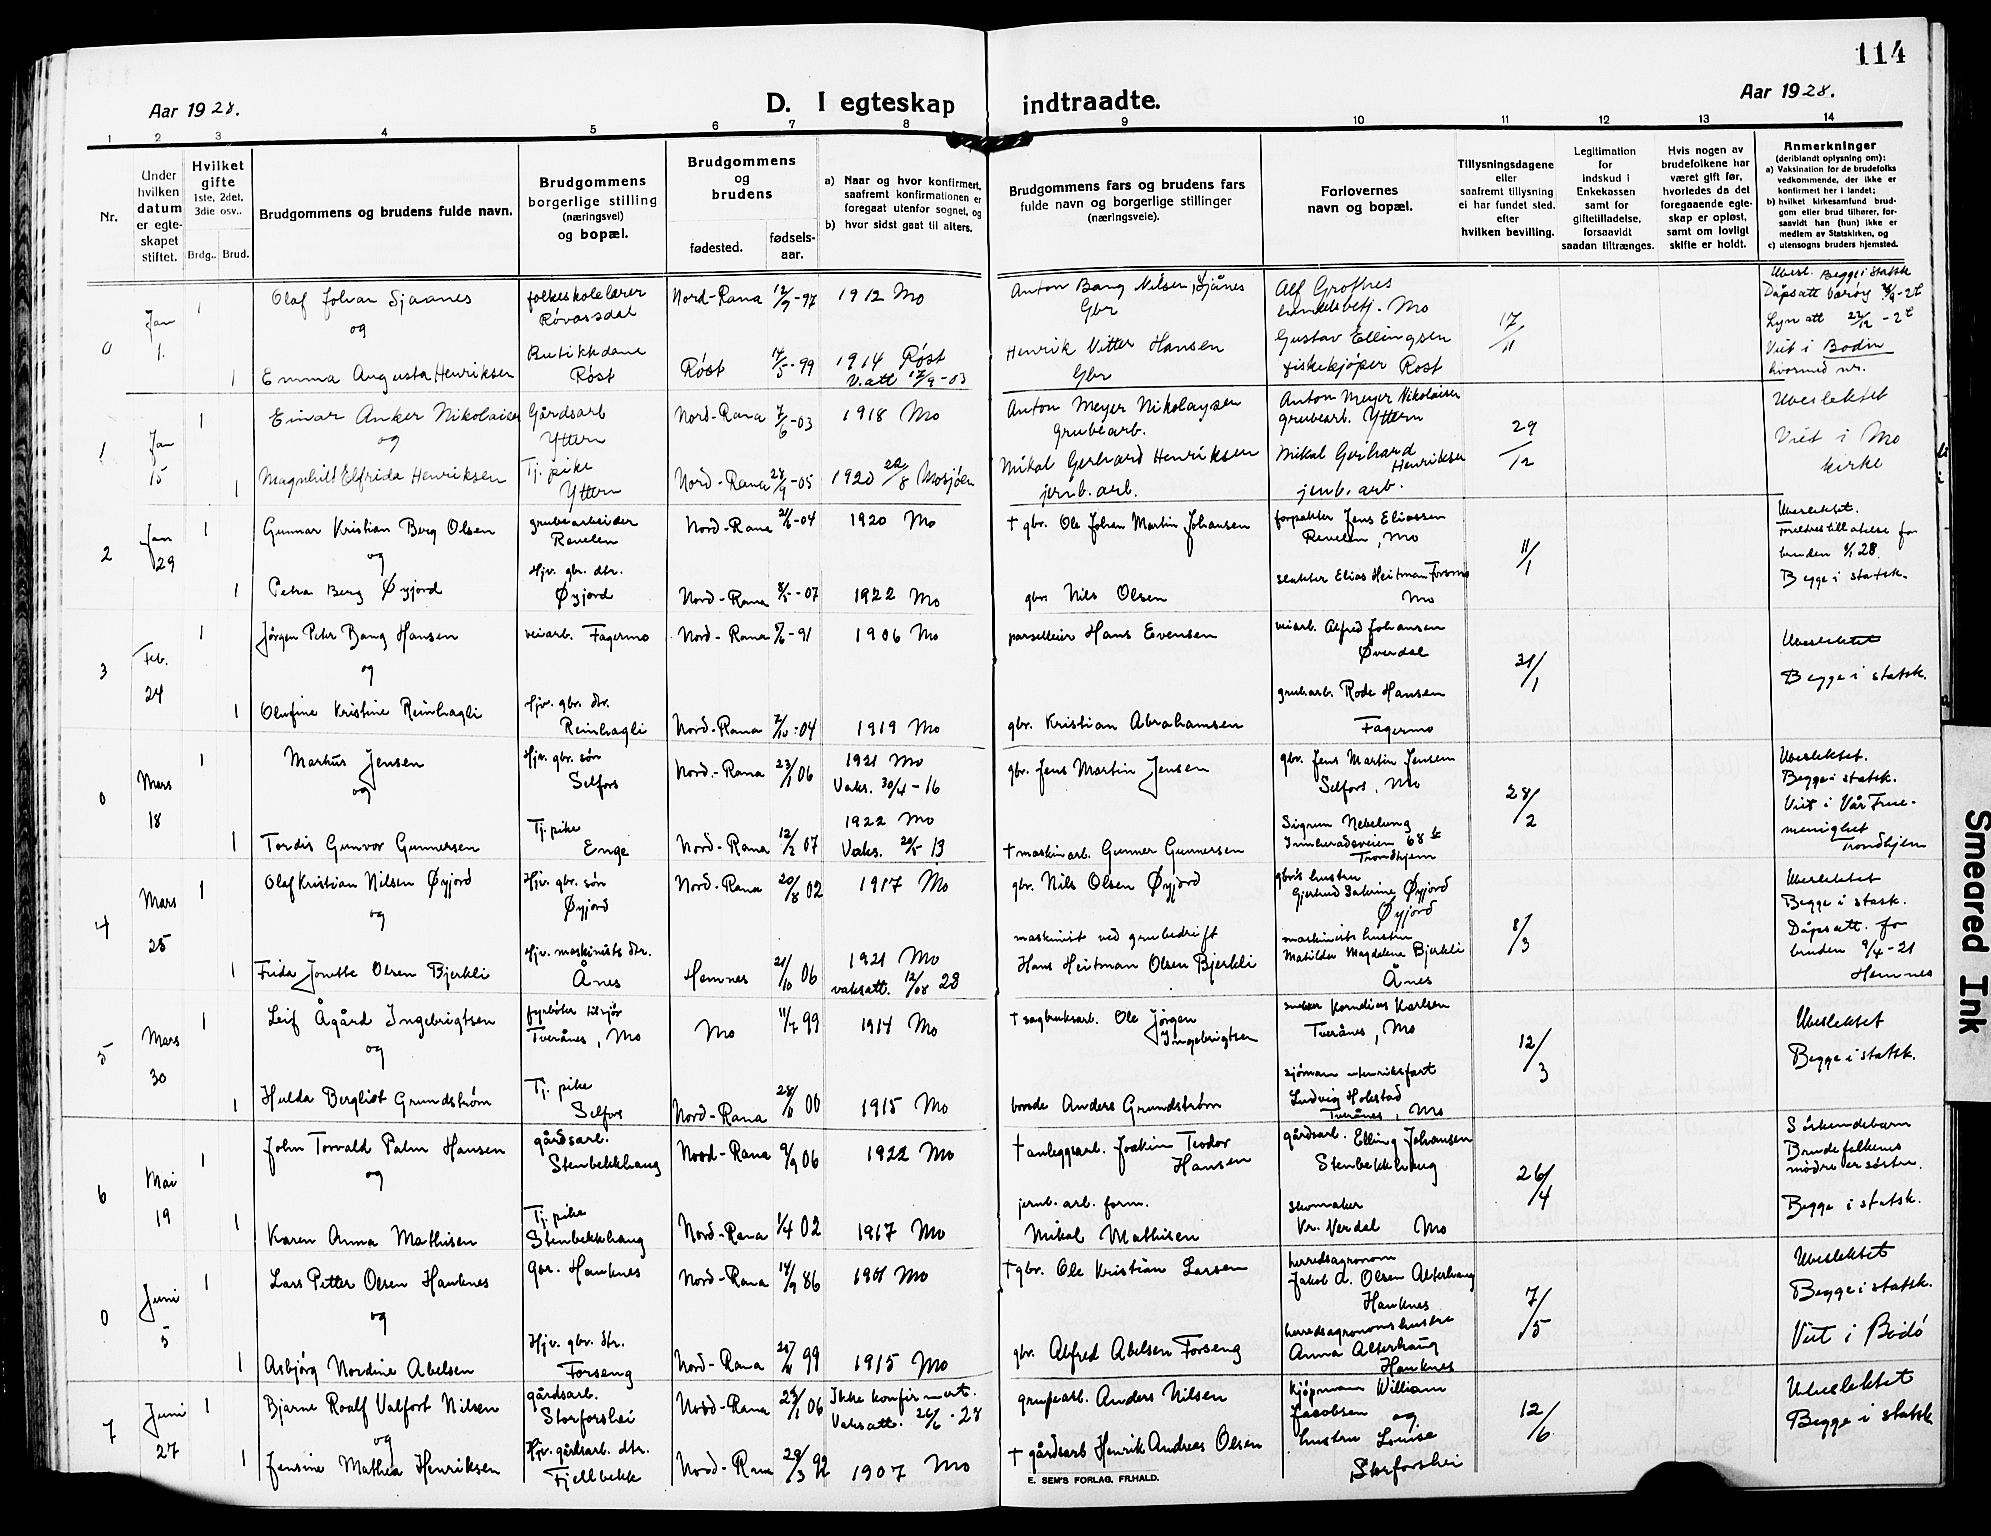 114
Aar 1928.
D. I egteskap indtraadte.
Aar 1928.
1 2 3 4 5 6 7 8 9 10 11 12 13 14
Nr.
Under
hvilken
datum
er egte-
skapet
stiftet.
Hvilket
gifte
1ste, 2det,
3die osv..
Brdg.. Brud.
Brudgommens og brudens fulde navn.
Brudgommens
borgerlige stilling
(næringsvei)
og bopæl.
Brudgommens
og
brudens
fødested.
fødsels-
aar.
a) Naar og hvor konfirmert,
saafremt konfirmationen er
foregaat utenfor sognet, og
b) hvor sidst gaat til alters.
Brudgommens fars og brudens fars
fulde navn og borgerlige stillinger
(næringsveie).
Forlovernes
navn og bopæl.
Tillysningsdagene
eller
saafremt tillysning
ei har fundet sted,
efter
hvilken bevilling.
Legitimation
for
indskud i
Enkekassen
samt for
giftetilladelse,
forsaavidt
saadan tiltrænges.
Hvis nogen av
brudefolkene har
været gift før,
hvorledes da det
foregaaende egte-
skap er opløst,
samt om lovligt
skifte er holdt.
Anmerkninger
(deriblandt oplysning om):
a) Vaksination for de brudefolks
vedkommende, der ikke er
konfirmert her i landet;
b) hvilket kirkesamfund brud-
gom eller brud tilhører, for-
saavidt han (hun) ikke er
medlem av Statskirken, og
c) utensogns bruders hjemsted.
0
Jan
1.
1
Olaf Johan Sjaanes
og
folkeskolelærer
Røvassdal
Nord-Rana 12/9-97 1912 Mo
Anton Bang Nilsen, Sjånes
Gbr
Alf Grotnes
handelsbetj. Mo
17/11
Ubesl. Begge i statsk
Dåpsatt Værøy
1
Emma Augusta Henriksen
Butikkdame
Røst
Røst 14/5-99 1914 Røst
V.att 17/9-03
Henrik Vitter Hansen
Gbr
Gustav Ellingsen
fiskekjøper Røst
Lyn att 22/12
Viet i Bodin
hvormed nr.
1
Jan
15
1
Einar Anker Nikolaisen
og
Gårdsarb
Yttern
Nord-Rana 7/6-03 1918 Mo
Anton Meyer Nikolaysen
grubearb.
Anton Meyer Nikolaisen
grubearb. Yttern
29/12
Ubeslektet
Viet i Mo
kirke
1
Magnhild Elfrida Henriksen
Tj. pike
Yttern
Nord-Rana 28/9-05 1920 22/8 Mosjøen
Mikal Gerhard Henriksen
jernb. arb.
Mikal Gerhard
Henriksen
jernb. arb.
2
Jan
29
1
Gunnar Kristian Berg Olsen
og
grubearbeider
Revelen
Nord-Rana 21/6-04 1920 Mo
† gbr. Ole Johan Martin Johansen
forpakter Jens Eliassen
Revelen, Mo
11/1
Ubeslektet.
Foreldres tillatelse for
bruden 9/1 28.
Begge i statsk.
1
Petra Berg Øyjord
Hjv. gbr. dtr.
Øyjord
Nord-Rana 8/5-07 1922 Mo
gbr. Nils Olsen
slakter Elias Heitman Forsmo
Mo
3
Feb.
24
1
Jørgen Peter Bang Hansen
og
veiarb. Fagermo
Nord-Rana 5/6-91 1906 Mo
parselleier Hans Evensen
veiarb. Alfred Johansen
Øverdal
31/1
Ubeslektet
Begge i statsk.
1
Olufine Kristine Reinhagli
Hjv. gbr. dtr.
Reinhagli
Nord-Rana 2/10-04 1919 Mo
gbr. Kristian Abrahamsen
grubarb. Rode Hansen
Fagermo
0
Mars
18
1
Markus Jensen
og
Hjv. gbr. søn
Selfors
Nord-Rana 23/1 06 1921 Mo
Vaks. 30/4-16
gbr. Jens Martin Jensen
gbr. Jens Martin Jensen
Selfors, Mo
28/2
Ubeslektet.
Begge i statsk.
Viet i Vår Frue-
menighet
Trondhjem
1
Tordis Gunvor Gunnersen
Tj. pike
Enge
Nord-Rana 12/2 07 1922 Mo
Vaks. 20/5 13
† maskinarb. Gunner Gunnersen
Sigrun Nebelung
Innheradsveien 68
Trondhjem
4
Mars
25
1
Olaf Kristian Nilsen Øyjord
og
Hjv. gbr. søn
Øyjord
Nord-Rana 20/8 02 1917 Mo
gbr. Nils Olsen Øyjord
gbr's hustru
Gjertrud Katrine Øyjord
Øyjord
8/3
Ubeslektet
Begge i stask.
Dåpsatt. for
bruden 9/4-21
Hemnes
1
Frida Jonette Olsen Bjerkli
Hjv. maskinists dtr.
Ånes
Hemnes 21/10 06 1921 Mo
vaksatt. 12/08 28
maskinist ved grubedrift
Hans Heitman Olsen Bjerkli
maskinists hustru
Matilda Magdelena Bjerkli
Ånes
5
Mars
30
1
Leif Ågård Ingebrigtsen
og
fyrbøter tilsjøs
Tverånes, Mo
Mo 11/7 99 1914 Mo
† sagbruksarb. Ole Jørgen
Ingebrigtsen
snekker Kornelius Karlsen
Tverånes, Mo
12/3
Ubeslektet
Begge i statsk.
1
Hulda Bergliot Grundstrøm
Tj. pike
Selfors
Nord-Rana 00 1915 Mo
bonde Anders Grundstrøm
sjømann
Ludvig Holestad
Tverånes, Mo
6
Mai
19
1
John Torvald Palm Hansen
og
gårdsarb.
Stenbekkhaug
Nord-Rana 9/9 06 1922 Mo
† anleggsarb. Joakim Teodor
Hansen
gårdsarb. Elling Johansen
Stenbekkhaug
26/4
Søskendebarn
Brudefolkenes
mødre er søstre.
Begge i statsk.
1
Karen Anna Mathisen
Tj. pike
Stenbekkhaug
Nord-Rana 1/4 02 1917 Mo
jernb. arb. form.
Mikal Mathisen
skomaker
Kr. Nerdal Mo
0
Juni
5
1
Lars Petter Olsen Hauknes
og
gbr. Hauknes
Nord-Rana 14/9 86 1901 Mo
† gbr. Ole Kristian Larsen
herredsagronom
Jakob A. Olsen Alterhaug
Hauknes
7/5
Ubeslektet
Begge i statsk.
Viet i Bodø
1
Asbjørg Nordine Abelsen
Hjv. gbr. dtr.
Forseng
Nord-Rana 99 1915 Mo
gbr. Alfred Abelsen Forseng
herredsagronoms hustru
Anna Alterhaug
Hauknes
7
Juni
27
1
Bjarne Roalf Valfort Nilsen
og
gårdsarb.
Storforshei
Nord-Rana 23/1 06 Ikke konfirmert.
Vaksatt. 26/6-28
grubearb. Anders Nilsen
kjøpmann William
Jacobsen og
hustru Louise
Storforshei
12/6
Ubeslektet
Begge i statsk
1
Jensine Mathea Henriksen
Hjv. gårdsarb. dtr.
Fjellbekk
Nord-Rana 29/3 92 1907 Mo
† gårdsarb Henrik Andreas Olsen
E. SEM'S FORLAG, FR.HALD.
Smeared Ink